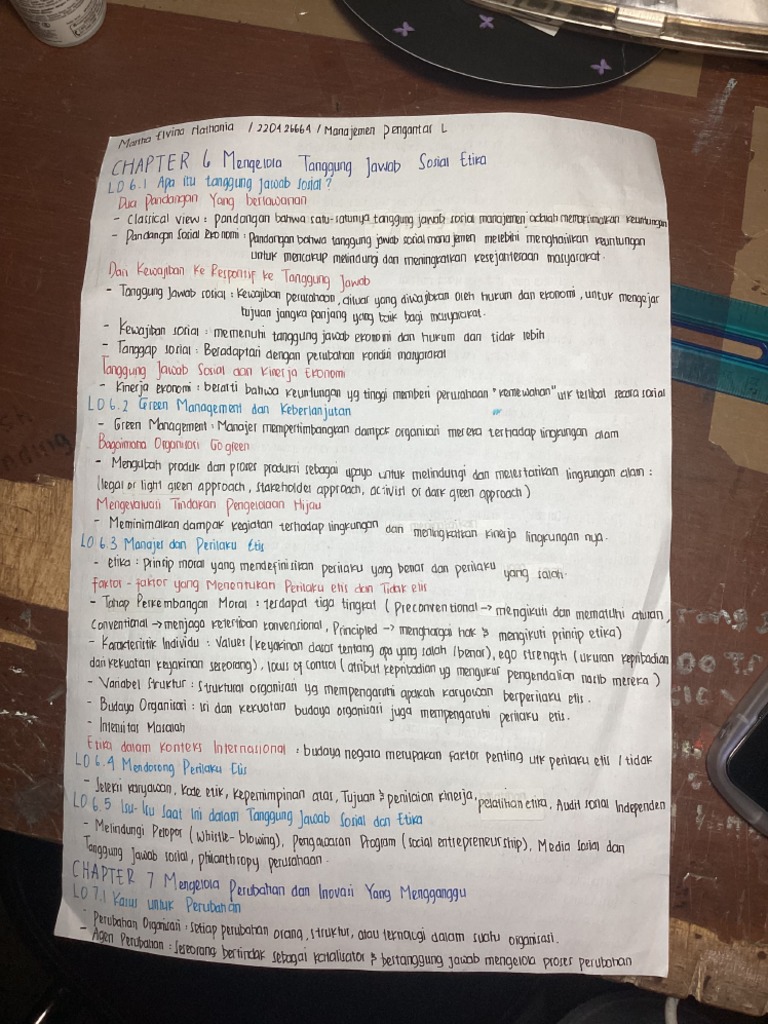 Martha Elvina Nathania / 220426664 / Manajemen Pengantar L
CHAPTER 6 Mengelola Tanggung Jawab Sosial Etika
LO 6.1 Apa itu tanggung jawab sosial?
Dua Pandangan Yang berlawanan
- Classical view : pandangan bahwa satu-satunya tanggung jawab sosial manajemen adalah memaksimalkan keuntungan
- Pandangan Sosial Ekonomi : Pandangan bahwa tanggung jawab sosial manajemen melebihi menghasilkan keuntungan
untuk mencakup melindungi dan meningkatkan kesejahteraan masyarakat.
Dari Kewajiban Ke Responsif ke Tanggung Jawab
- Tanggung Jawab sosial : Kewajiban perusahaan, diluar yang diwajibkan oleh hukum dan ekonomi, untuk mengejar
tujuan jangka panjang yang baik bagi masyarakat.
- Kewajiban sosial : memenuhi tanggung jawab ekonomi dan hukum dan tidak lebih
- Tanggap sosial : Beradaptasi dengan perubahan kondisi masyarakat
Tanggung Jawab Sosial dan Kinerja Ekonomi
- Kinerja ekonomi : berarti bahwa keuntungan yg tinggi memberi perusahaan "kemewahan" utk terlibat secara sosial
LO 6.2 Green Management dan Keberlanjutan
- Green Management : Manajer mempertimbangkan dampak organisasi mereka terhadap lingkungan alam
Bagaimana Organisasi Go green
- Mengubah produk dan proses produksi sebagai upaya untuk melindungi dan melestarikan lingkungan alam :
(legal or light green approach, stakeholder approach, activist or dark green approach)
Mengevaluasi Tindakan Pengelolaan Hijau
- Meminimalkan dampak kegiatan terhadap lingkungan dan meningkatkan kinerja lingkungan nya.
LO 6.3 Manajer dan Perilaku Etis
- etika : prinsip moral yang mendefinisikan perilaku yang benar dan perilaku yang salah.
faktor - faktor yang Menentukan Perilaku etis dan Tidak etis
- Tahap Perkembangan Moral : terdapat tiga tingkat ( Preconventional → mengikuti dan mematuhi aturan,
Conventional → menjaga ketertiban konvensional, Principled → menghargai hak & mengikuti prinsip etika)
- Karakteristik Individu : Values (keyakinan dasar tentang apa yang salah /benar), ego strength (ukuran kepribadian
dari kekuatan keyakinan seseorang), locus of control (atribut kepribadian yg mengukur pengendalian nasib mereka)
- Variabel Struktur : Struktural organisasi yg mempengaruhi apakah karyawan berperilaku etis.
- Budaya Organisasi : isi dan kekuatan budaya organisasi juga mempengaruhi perilaku etis.
- Intensitas Masalah
Etika dalam Konteks Internasional : budaya negara merupakan faktor penting utk perilaku etis / tidak
LO 6.4 Mendorong Perilaku Etis
- Seleksi karyawan, kode etik, kepemimpinan atas, Tujuan & penilaian kinerja, pelatihan etika, Audit sosial Independen
LO 6.5 Isu-Isu Saat Ini dalam Tanggung Jawab Sosial dan Etika
- Melindungi Pelapor (Whistle-blowing), Pengawasan Program (social entrepreneurship), Media Sosial dan
Tanggung Jawab sosial, philanthropy perusahaan.
CHAPTER 7 Mengelola Perubahan dan Inovasi Yang Mengganggu
LO 7.1 Kasus untuk Perubahan
- Perubahan Organisasi : setiap perubahan orang, struktur, atau teknologi dalam suatu organisasi.
- Agen Perubahan : seseorang bertindak sebagai katalisator & bertanggung jawab mengelola proses perubahan